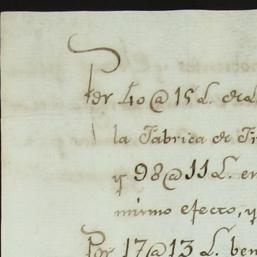 Por 40@15 L. de
la Fabrica de Tr
y 98@11 L. en
mismo efecto, y
Por 17@13 L. ben